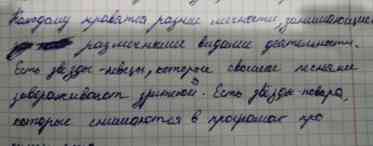 Каждому нравятся разные личности, занимающиеся
различными видами деятельности.
Есть звёзды-певцы, которые своими песнями
завораживают зрителей. Есть звёзды-повара,
которые снимаются в програмах про